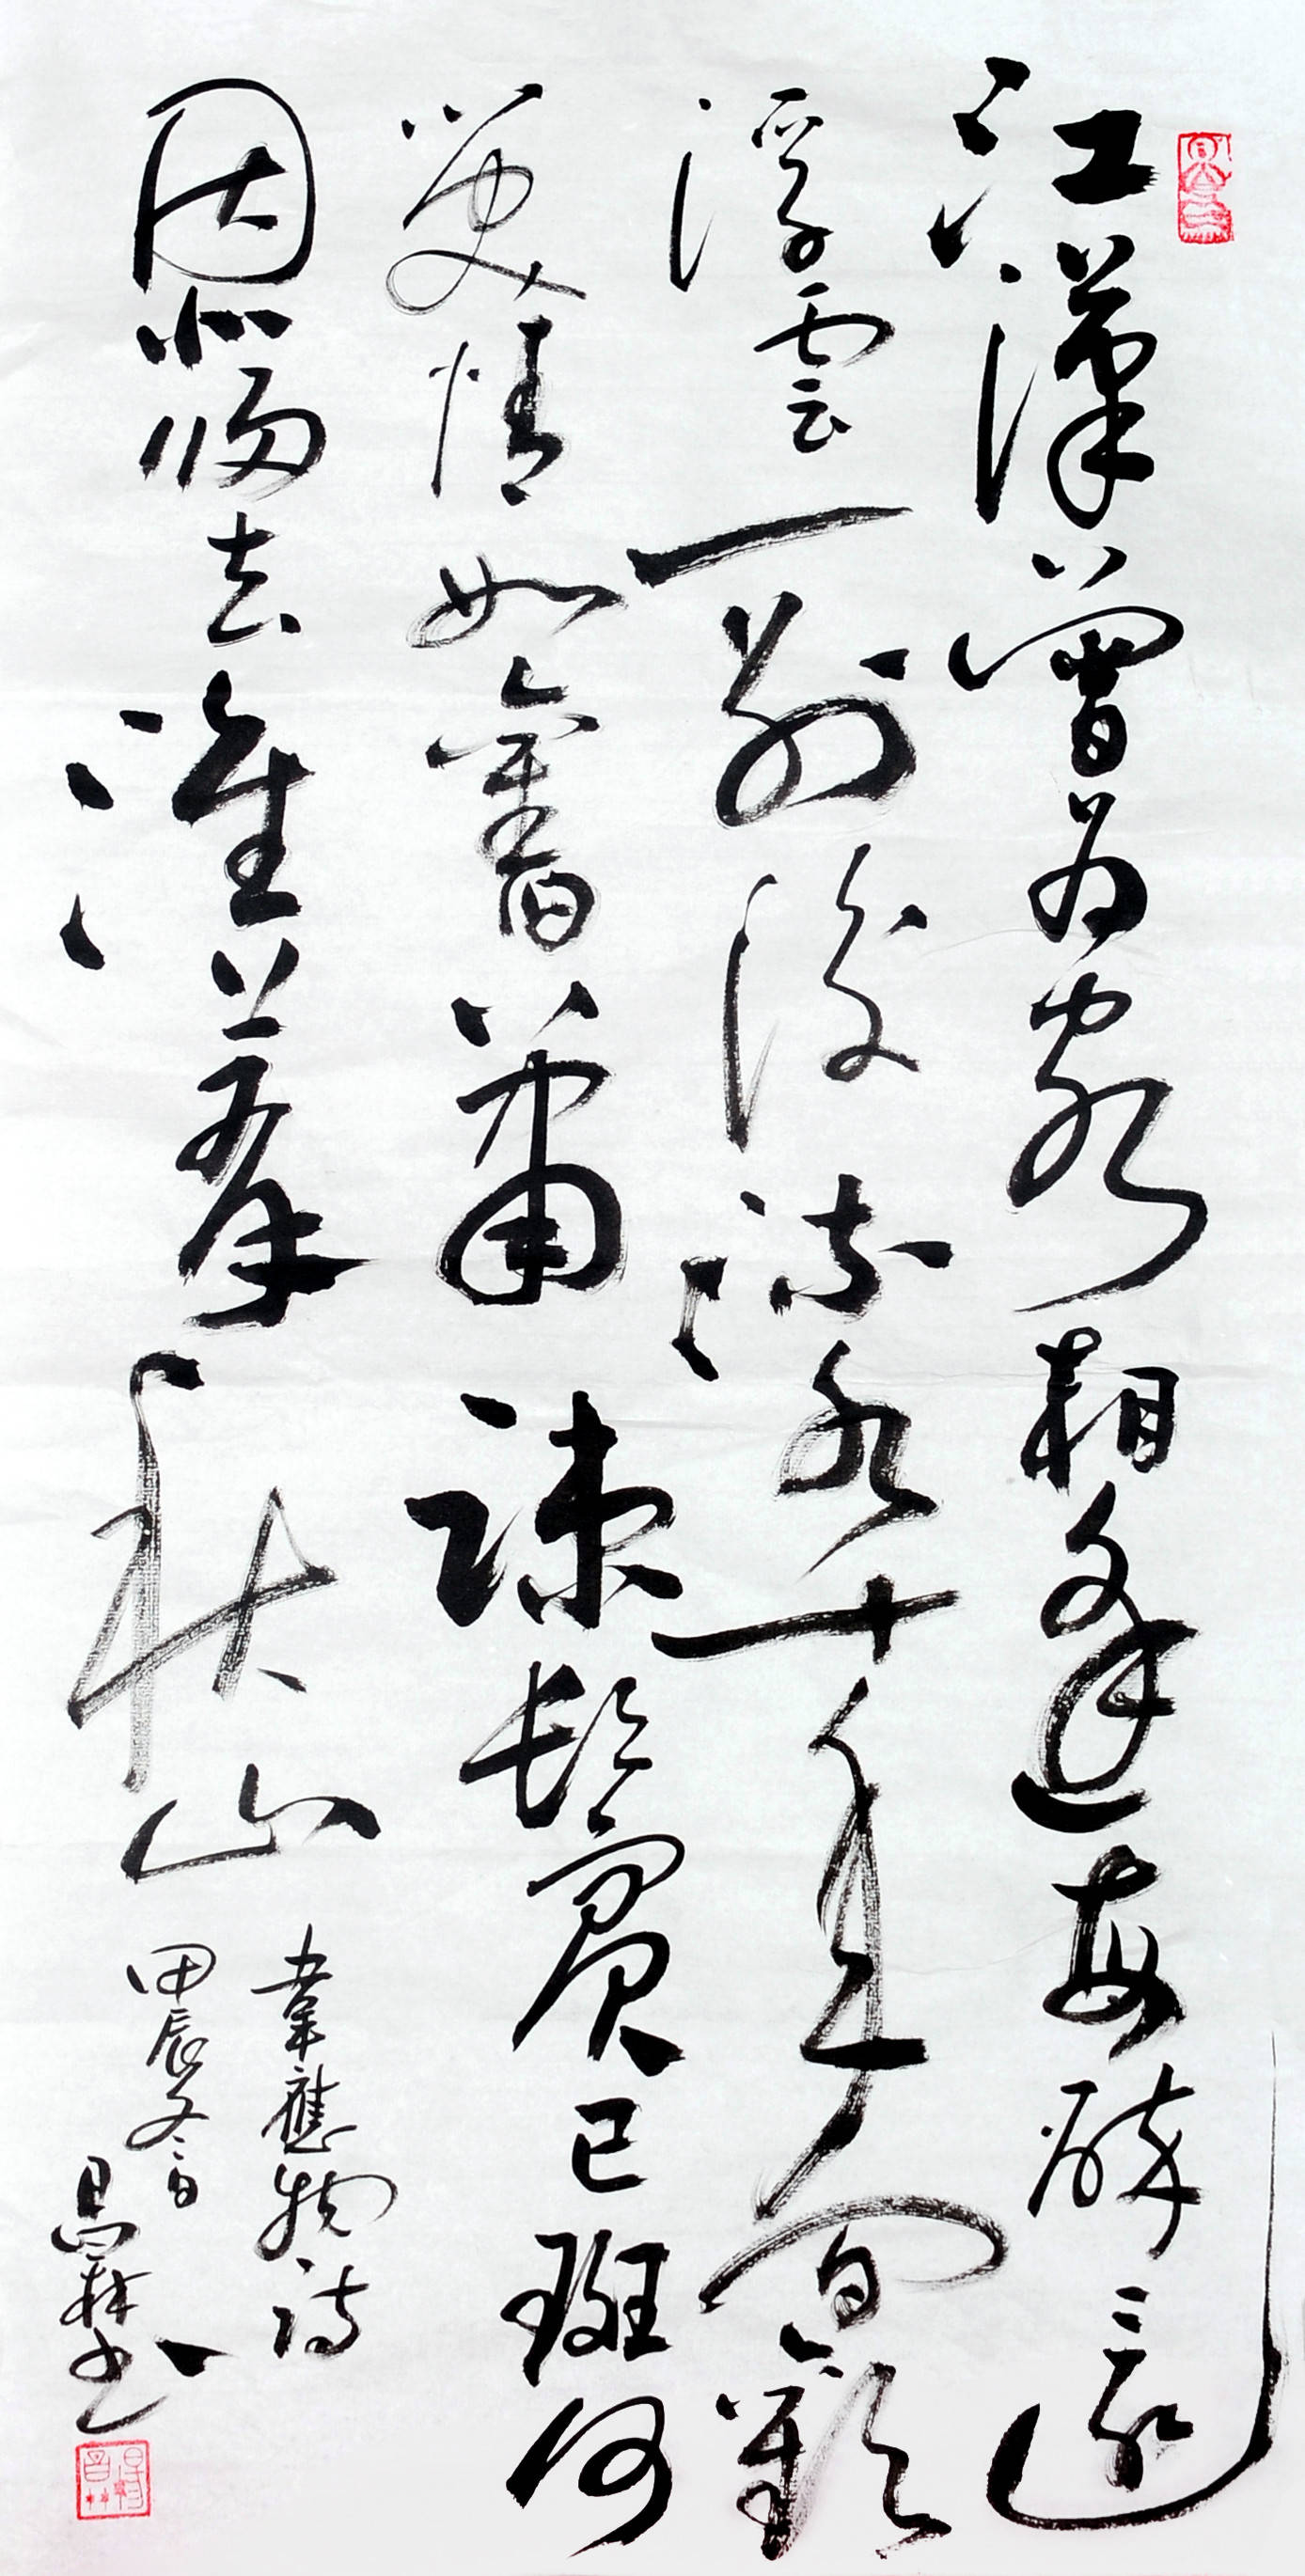 江漢曾為客相逢每醉還
浮雲一別後流水十年間歡
笑情如舊蕭疎鬢已斑何
因北歸去淮上對秋山
韋應物詩
甲辰冬
林书